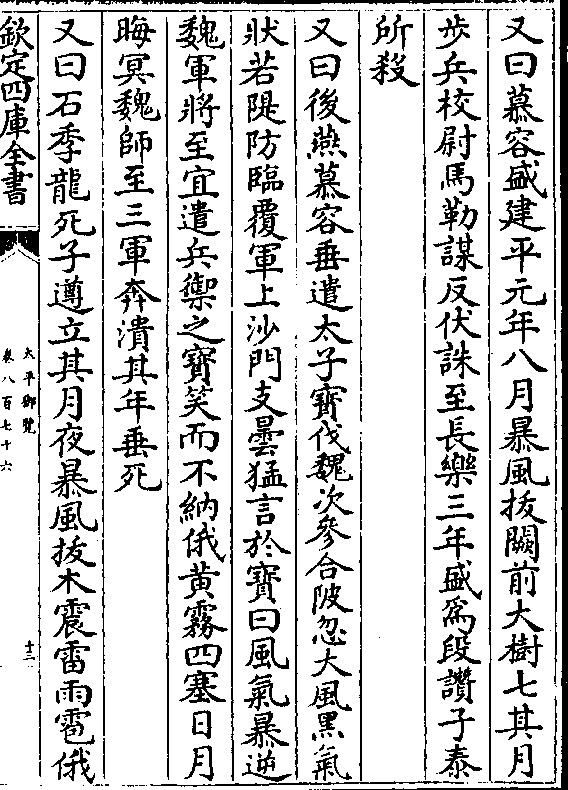 又曰慕容盛建平元年八月暴風拔闕前大樹七其月
歩兵校尉馬勒謀反伏誅至長樂三年盛爲段讚子泰
所殺
又曰後燕慕容垂遣太子寶伐魏次參合陂忽大風黑氣
狀若隄防臨覆軍上沙門支曇猛言於寶曰風氣暴逆
魏軍將至宜遣兵禦之寶笑而不納俄黄霧四塞日月
晦冥魏師至三軍奔潰其年垂死
又曰石季龍死子遵立其月夜暴風拔木震雷雨雹俄
欽定四庫全書
太平御覽
卷八百七十六
十二